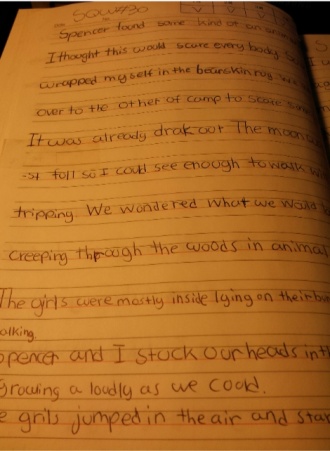 SQW#30
Spencer found some kind of an
I thought this would scare every body
wrapped myself in the bearskin rug
over to the other of camp to scare
It was already drak out The moon
-st full so I could see enough to walk
tripping. We wondered what we would
creeping through the woods in animal
The girls were mostly inside lying on their bu
alking.
Spencer and I stuck our heads in th
Growing a loudly as we coold.
e grils jumped in the air and star